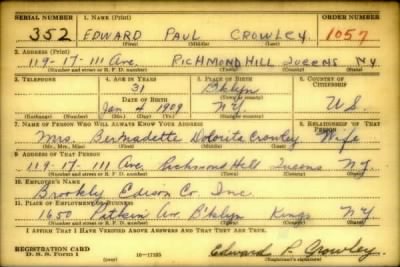 SERIAL NUMBER 1. NAME (Print) ORDER NUMBER
352 EDWARD PAUL CROWLEY. 1057
(First) (Middle) (Last)
2. ADDRESS (Print)
119-17-111 Ave. RICHMOND HILL QUEENS N.Y.
(Number and street or R. F. D. number) (Town) (County) (State)
3. TELEPHONE 4. AGE IN YEARS 5. PLACE OF BIRTH 6. COUNTRY OF CITIZENSHIP
31 B'klyn
DATE OF BIRTH (Town or county)
Jan 1909 NY U.S.
(Exchange) (Number) (Mo.) (Day) (Yr.) (State or country)
7. NAME OF PERSON WHO WILL ALWAYS KNOW YOUR ADDRESS 8. RELATIONSHIP OF THAT PERSON
Mrs. Bernadette Dolorita Crowley Wife
(Mr., Mrs., Miss) (First) (Middle) (Last)
9. ADDRESS OF THAT PERSON
119-17-111 Ave. Richmond Hill Queens N.Y.
(Number and street or R. F. D. number) (Town) (County) (State)
10. EMPLOYER'S NAME
Brookly Edison Co. Inc.
11. PLACE OF EMPLOYMENT OR BUSINESS
1650 Pitkin Av. B'klyn Kings NY
(Number and street or R. F. D. number) (Town) (County) (State)
I AFFIRM THAT I HAVE VERIFIED ABOVE ANSWERS AND THAT THEY ARE TRUE.
REGISTRATION CARD
D. S. S. Form 1 (over) 16-17105 Edward P. Crowley
(Registrant's signature)